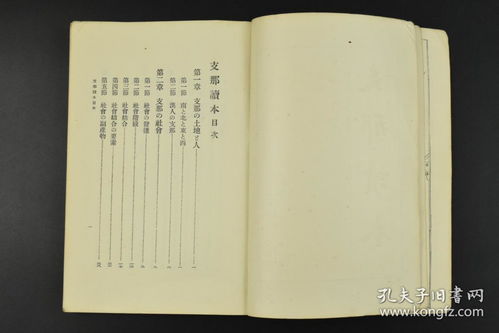 支那讀本目次
第一章 支那の土地と人
第一節 南と北と東と西
第二節 漢人の支那
第二章 支那の社會
第一節 社會の發達
第二節 社會階級
第三節 社會結合
第四節 社會結合の要素
第五節 社會の副產物
支那讀本目次
一
孔夫子旧书网
kongfz.com